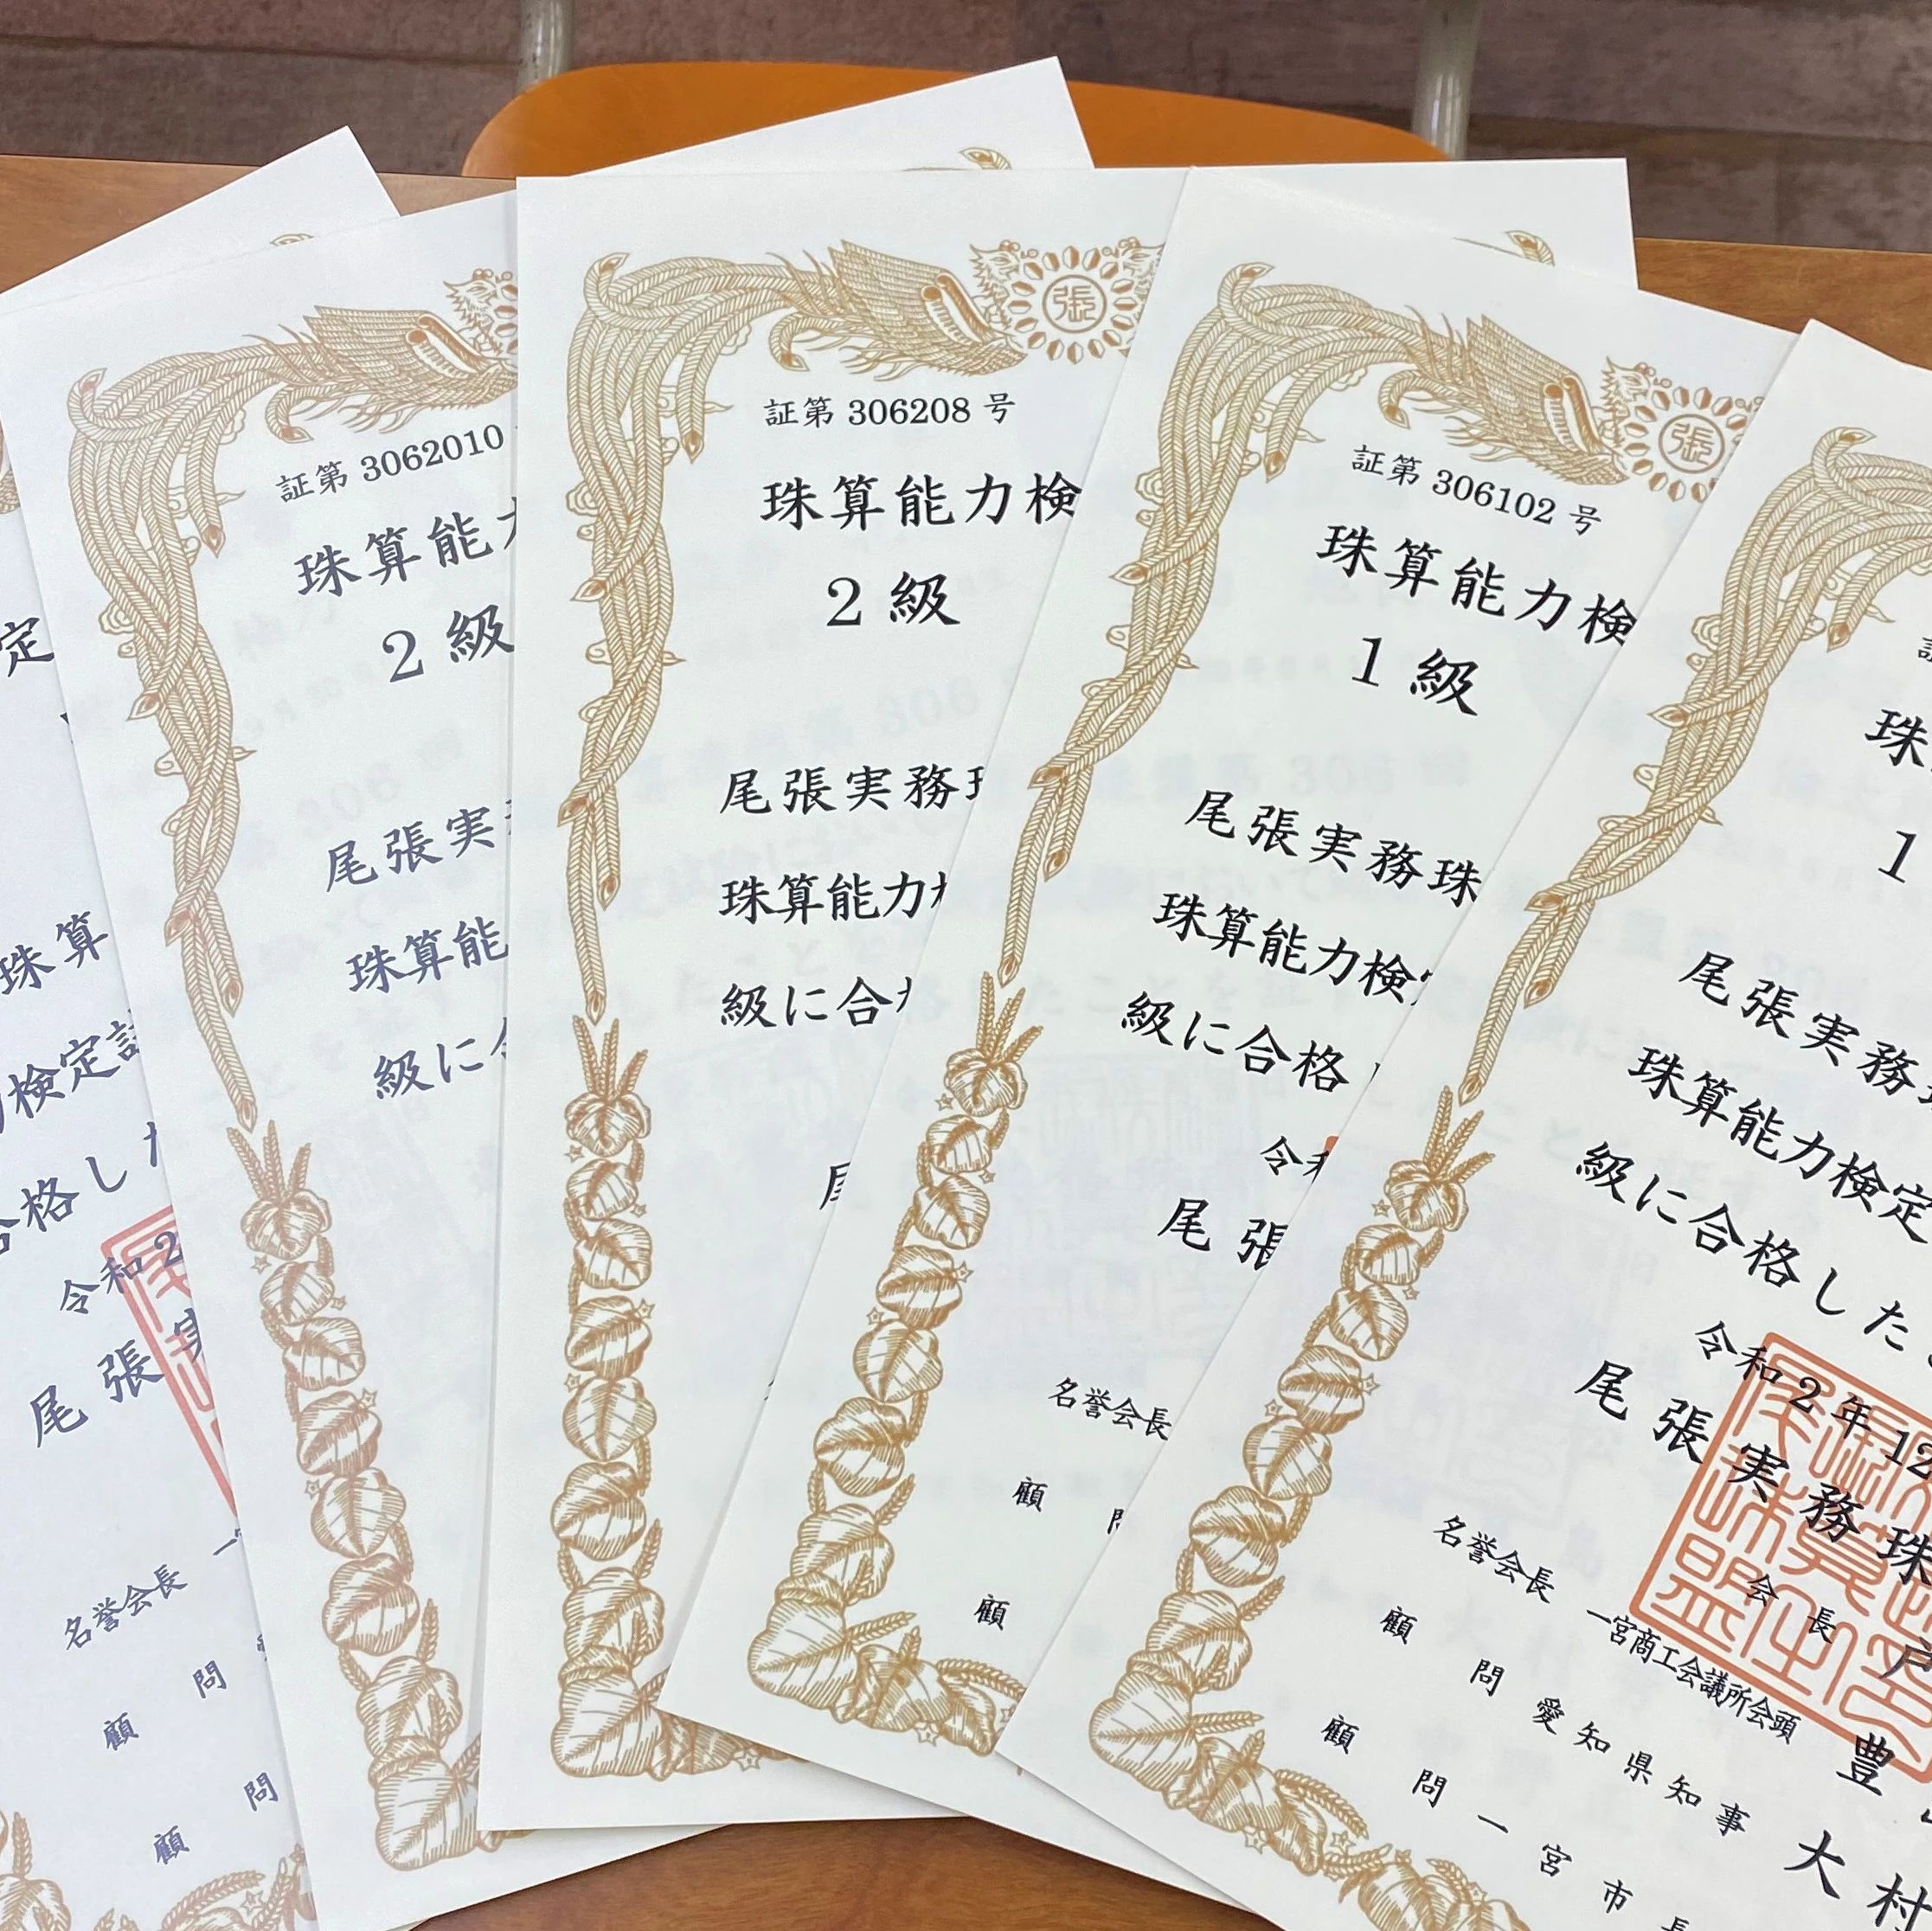 定
珠算
検定試
合格した
令和2
尾張実
名誉会長
顧問
顧問
証第 3062010
珠算能力
2級
尾張実
珠算能
級に合
張
証第 306208 号
珠算能力検
2級
尾張実務
珠算能力
級に合
尾
張
証第 306102 号
珠算能力検
1級
尾張実務珠
珠算能力検
級に合格
令和
尾張
名誉会長
顧問
顧
珠
1
尾張実務
珠算能力検定
級に合格した
令和2年12
尾張実務珠
会長 戸
名誉会長 一宮商工会議所会頭 豊
顧問 愛知県知事 大村
顧問 一宮市長